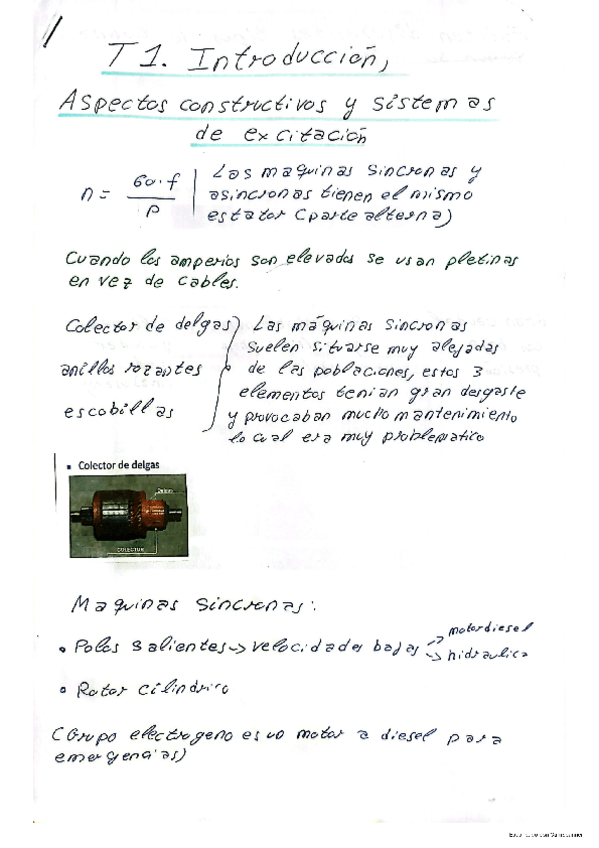 1
T1. Introducción,
Aspectos constructivos y sistemas
de excitación
n = 60·f / p
Las maquinas sincronas y
asincronas tienen el mismo
estator (parte alterna)
Cuando los amperios son elevados se usan pletinas
en vez de cables.
Colector de delgas
anillos rozantes
escobillas
Las máquinas sincronas
suelen situarse muy alejadas
de las poblaciones, estos 3
elementos tenian gran desgaste
y provocaban mucho mantenimiento
lo cual era muy problematico
▪ Colector de delgas
COLECTOR
Maquinas sincronas:
• Polos salientes -> velocidades bajas
-> motor diesel
-> hidraulica
• Rotor cilindrico
(Grupo electrogeno es un motor a diesel para
emergencias)